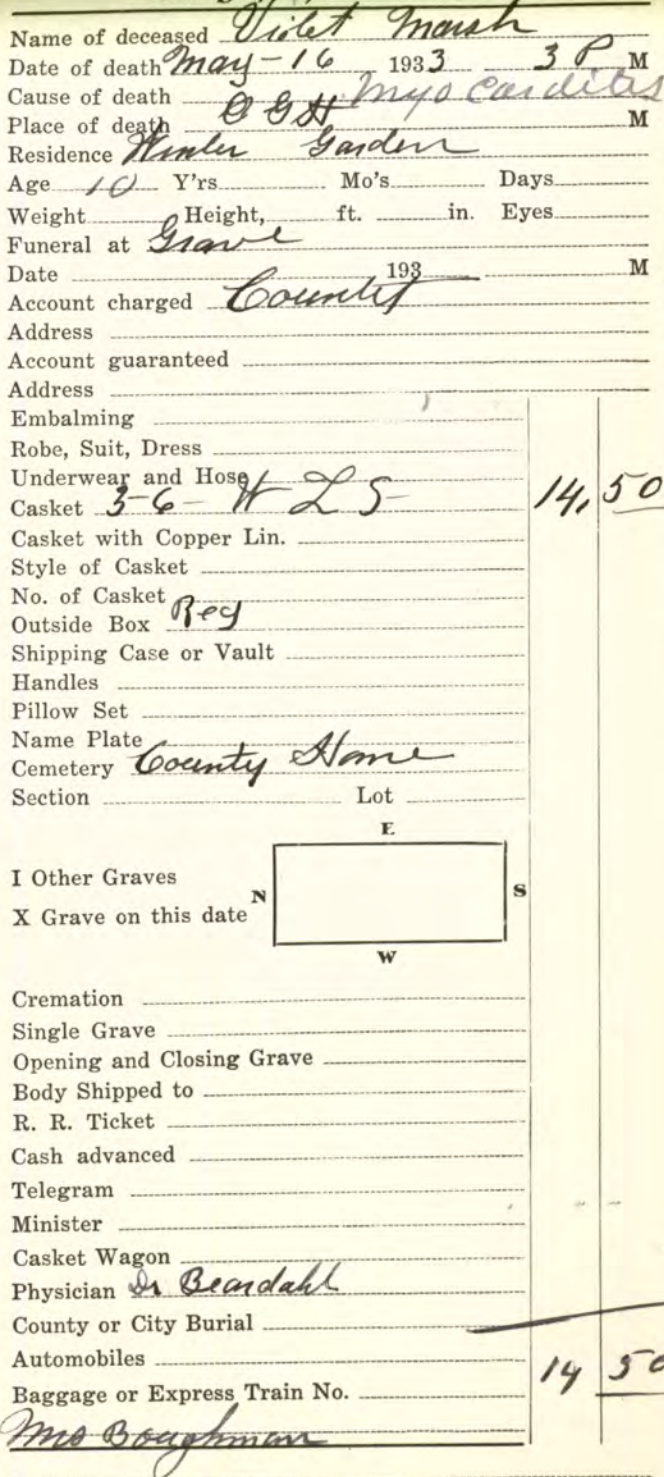 Name of deceased Violet Marsh
Date of death May-16 1933 3 P M
Cause of death Myocarditis
Place of death O G H M
Residence Winter Garden
Age 10 Y'rs Mo's Days
Weight Height, ft. in. Eyes
Funeral at Grave
Date 193 M
Account charged County
Address
Account guaranteed
Address
Embalming
Robe, Suit, Dress
Underwear and Hose
Casket 3-6- W L S- 14, 50
Casket with Copper Lin.
Style of Casket
No. of Casket
Outside Box Reg
Shipping Case or Vault
Handles
Pillow Set
Name Plate
Cemetery County Home
Section Lot
E
I Other Graves
N S
X Grave on this date
W
Cremation
Single Grave
Opening and Closing Grave
Body Shipped to
R. R. Ticket
Cash advanced
Telegram
Minister
Casket Wagon
Physician Dr Beardahl
County or City Burial
Automobiles 14 50
Baggage or Express Train No.
Mrs Boughman